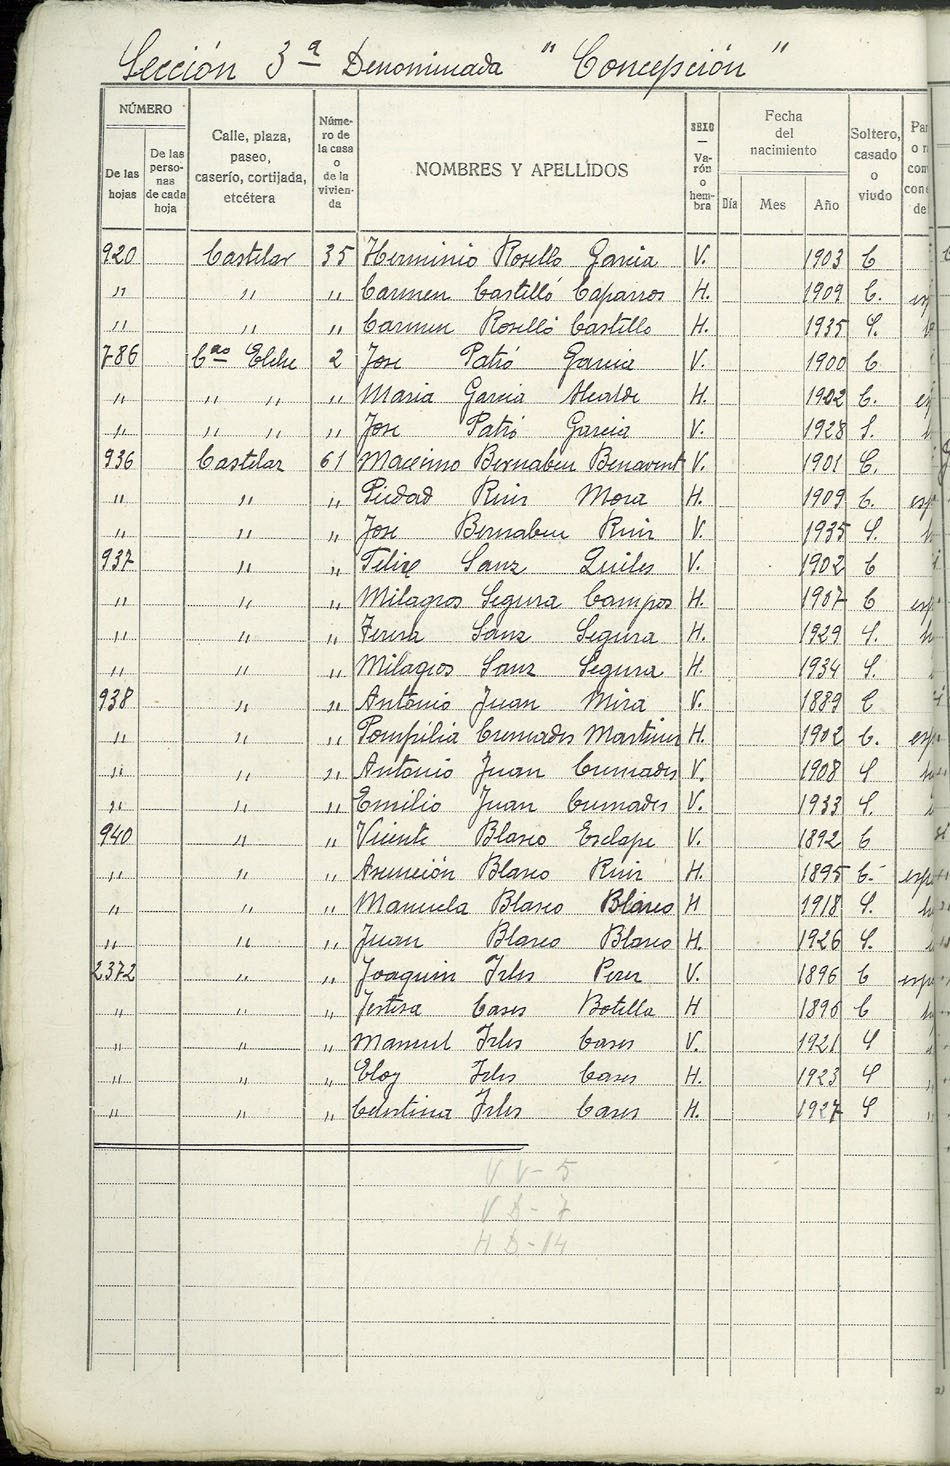 Sección 3ª Denominada "Concepción"
NÚMERO
De las hojas
De las perso- nas de cada hoja
Calle, plaza, paseo, caserío, cortijada, etcétera
Núme- ro de la casa o de la vivien- da
NOMBRES Y APELLIDOS
SEXO — Va- rón o hem- bra
Fecha del nacimiento
Día Mes Año
Soltero, casado o viudo
920 Castelar 35 Herminio Roselló Garcia V. 1903 C
" " " Carmen Castelló Caparros H. 1909 C.
" " " Carmen Roselló Castello H. 1935 S.
786 Cno Elche 2 Jose Patró Garcia V. 1900 C
" " " " Maria Garcia Alcalde H. 1902 C. es
" " " " Jose Patró Garcia V. 1928 S.
936 Castelar 61 Macimo Bernabeu Benavent V. 1901 C.
" " " Piedad Ruiz Mora H. 1909 C. esp
" " " Jose Bernabeu Ruiz V. 1935 S. h
937 " " Felixe Sanz Quiles V. 1902 C
" " " Milagros Segura Campos H. 1907 C esp
" " " Teresa Sanz Segura H. 1929 S. h
" " " Milagros Sanz Segura H. 1934 S.
938 " " Antonio Juan Mira V. 1889 C
" " " Pompilia Cremades Martinez H. 1902 C. esp
" " " Antonio Juan Cremades V. 1908 S
" " " Emilio Juan Cremades V. 1933 S.
940 " " Vicente Blasco Esclape V. 1892 C
" " " Asunción Blasco Ruiz H. 1895 C. esp
" " " Manuela Blasco Blasco H 1918 S. h
" " " Juan Blasco Blasco H. 1926 S.
2372 " " Joaquin Irles Perez V. 1896 C esp
" " " Teresa Cases Botella H 1896 C h
" " " Manuel Irles Cases V. 1921 S
" " " Eloy Irles Cases H. 1923 S
" " " Celestina Irles Cases H. 1927 S
V V - 5
V D - 7
H D - 14